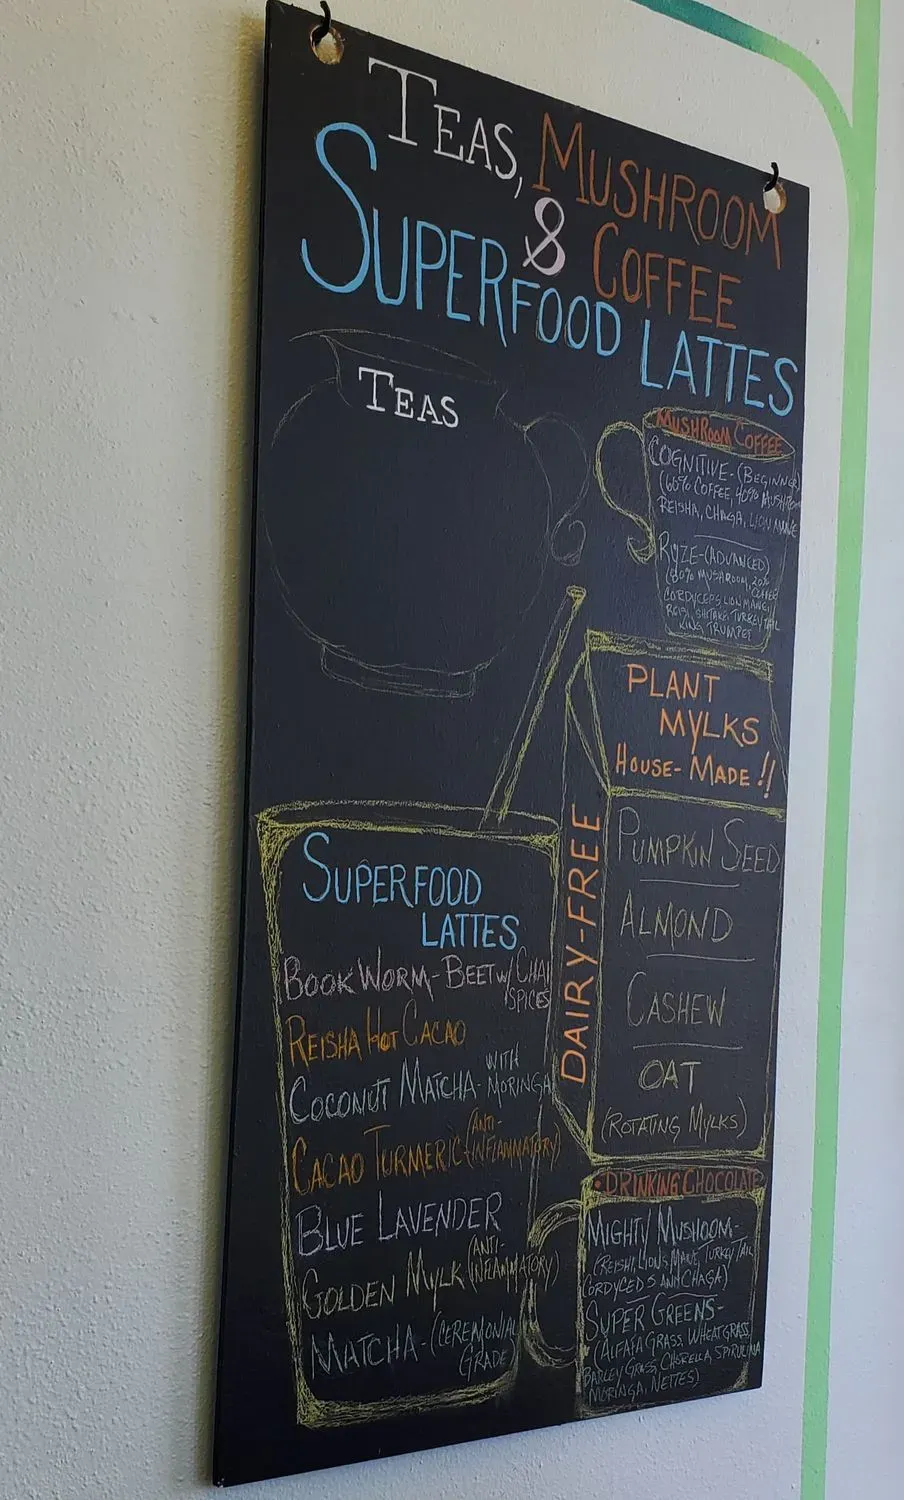 TEAS, MUSHROOM
& COFFEE
SUPERFOOD LATTES
TEAS
MUSHROOM COFFEE
COGNITIVE-(BEGINNER)
(60% COFFEE, 40% MUSHROOM
REISHA, CHAGA, LION MANE
RYZE-(ADVANCED)
(80% MUSHROOM, 20% COFFEE
CORDYCEPS LION MANE,
REISI, SHITAKE, TURKEY TAIL
KING TRUMPET
PLANT
MYLKS
HOUSE-MADE!!
DAIRY-FREE
PUMPKIN SEED
ALMOND
CASHEW
OAT
(ROTATING MYLKS)
SUPERFOOD
LATTES
BOOKWORM-BEET W/ CHAI
SPICES
REISHA HOT CACAO
COCONUT MATCHA-WITH MORINGA
CACAO TURMERIC (ANTI-INFLAMMATORY)
BLUE LAVENDER
GOLDEN MYLK (ANTI-INFLAMMATORY)
MATCHA-(CEREMONIAL
GRADE)
•DRINKING CHOCOLATE
MIGHTY MUSHOOM-
(REISHI, LIONS MANE, TURKEY TAIL
CORDYCED S ANH CHAGA)
SUPER GREENS-
(ALFAFA GRASS, WHEATGRASS,
BARLEY GRASS, CHORELLA, SPIRULINA
MORINGA, NETTES)